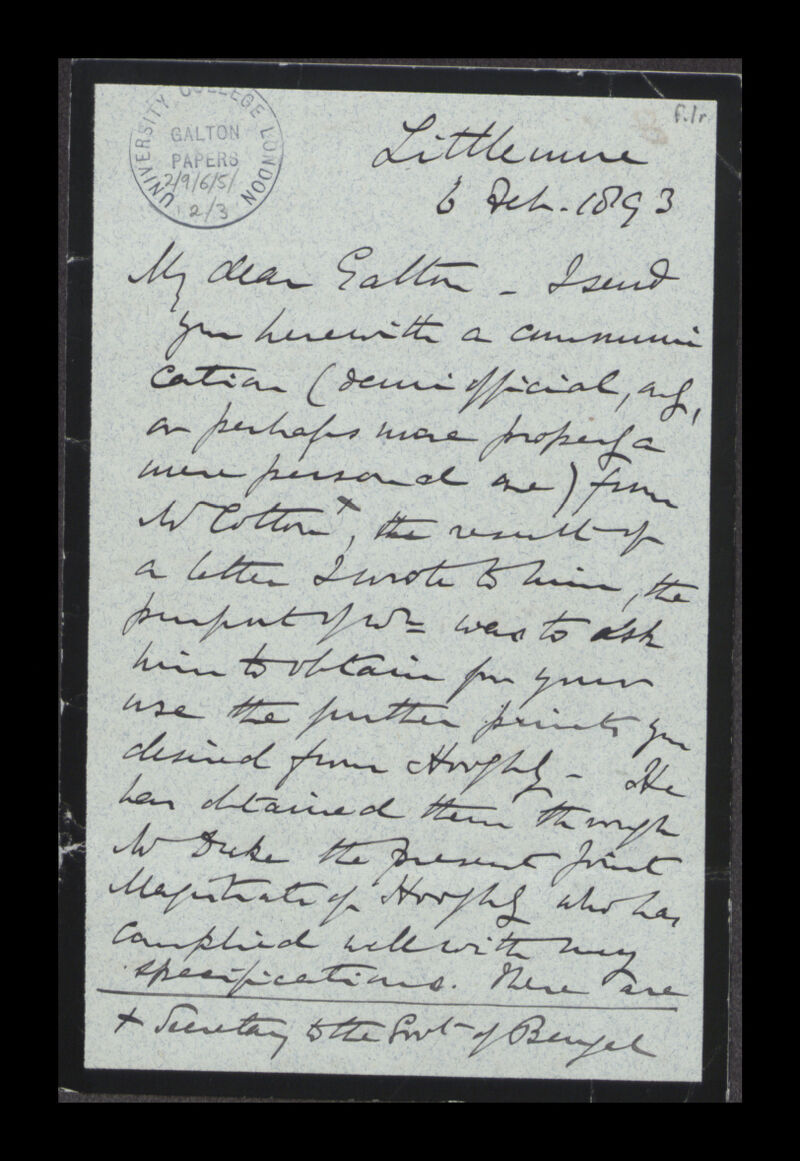 UNIVERSITY COLLEGE LONDON
GALTON
PAPERS
2/9/6/5/
2/3
f.1r
Littlemore
6 Feb. 1893
My dear Galton - I send
you herewith a communi
cation (demi official,
or perhaps more properly a
mere personal one) from
Mr Cotton +, the result of
a letter I wrote to him, the
purport of wh= was to ask
him to obtain for your
use the further prints you
desired from Hooghly - He
has obtained them through
Mr Duke the present Joint
Magistrate of Hooghly who has
complied well with my
specifications. There are
+ Secretary to the Govt of Bengal